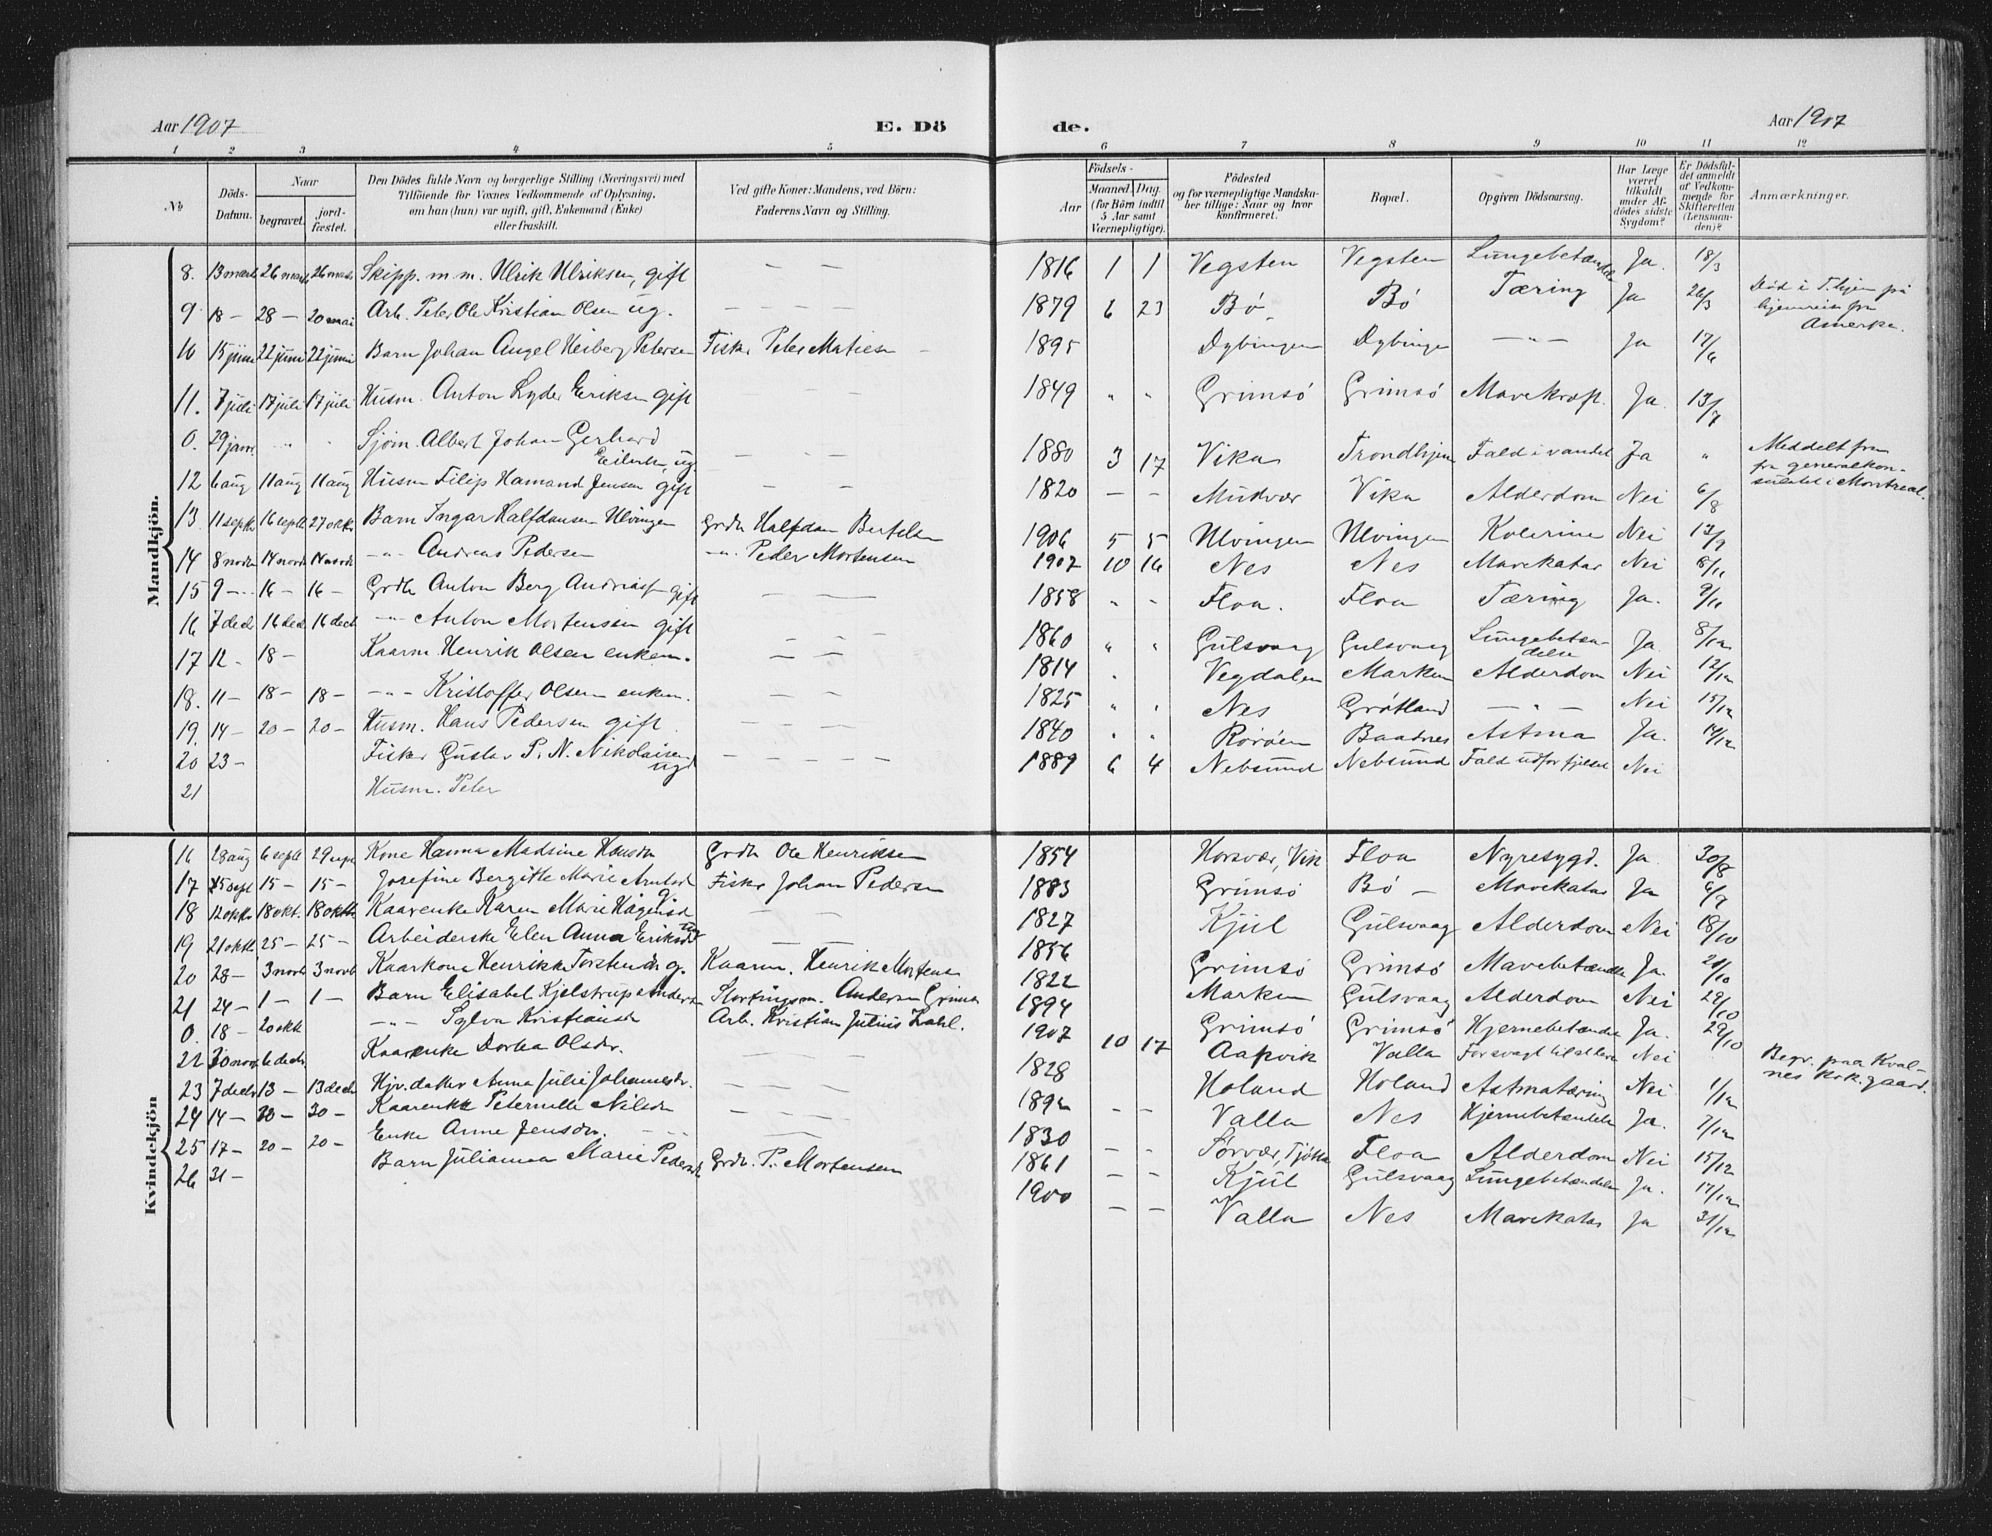 Aar 1907
E. Dö
de.
Aar 1907
1 2 3 4 5 6 7 8 9 10 11 12
№
Döds-Datum.
Naar
begravet.
jord-fæstet.
Den Dödes fulde Navn og borgerlige Stilling (Næringsvei) med
Tilföiende for Voxnes Vedkommende af Oplysning,
om han (hun) var ugift, gift, Enkemand (Enke)
eller fraskilt.
Ved gifte Koner: Mandens, ved Börn:
Faderens Navn og Stilling.
Födsels-
Aar
Maaned. Dag.
(for Börn indtil
5 Aar samt
Værnepligtige).
Födested
og for værnepligtige Mandska-
ber tillige: Naar og hvor
konfirmeret.
Bopæl.
Opgiven Dödsaarsag.
Har Læge
været
tilkaldt
under Af-
dödes sidste
Sygdom?
Er Dödsfal-
det anmeldt
af Vedkom-
mende for
Skifteretten
(Lensman-
den)?
Anmærkninger.
Mandkjön.
8. 13 marts 26 marts 26 marts Skipp. m.m. Ulrik Ulriksen, gift — — 1816 1 1 Vegsten Vegsten Lungebetændelse Ja. 18/3
9 18 – 28 – 20 mai Arb. Peter Ole Kristian Olsen ug. — — 1879 6 23 Bö Bö Tæring Ja 26/3 Död i T.hjem på hjemreise fra Amerka.
10 15 juni 22 juni 22 juni Barn Johan Angel Heiberg Petersen Fisker Peter Matiesen 1895 Dybingen Dybingen — " — Ja 17/6
11. 7 juli 17 juli 17 juli Husm. Anton Lyder Eriksen gift — — 1849 " " Grimsö Grimsö Mavekræft. Ja. 13/7
0. 29 janr. " " Sjöm. Albert Johan Gerhard Eilertsen, ug. — — 1880 3 17 Vika Trondhjem Fald i vandet Ja " Meddelt fra fra generalkonsulatet i Montreal.
12 6 aug 11 aug 11 aug Husm Filip Hamand Jensen gift — — 1820 – – Mudvær Vika Alderdom Nei 6/8
13 11 septbr 16 septb 27 oktr Barn Ingar Halfdansen Ulvingen Grdb Halfdan Bertelsen 1906 5 5 Ulvingen Ulvingen Kolerine Nei 12/9
14 8 novbr 14 novb 14 novb — " — Andreas Pedersen — " — Peder Mortensen 1907 10 16 Nes Nes Mavekatar Nei 8/11
15 9 – 16 – 16 – Grdb Anton Berg Andreass gift — — — 1858 " " Floa. Floa Tæring Ja. 9/11
16 7 decb 16 dec 16 decb — " — Anton Mortensen gift — — — 1860 " " Gulsvaag Gulsvaag Lungebetændelse Ja. 8/12
17 12 – 18 – Kaarm Henrik Olsen enkem. — — 1814 " Vegdalen Marken Alderdom Nei 12/12
18. 11 – 18 – 18 – — " — Kristoffer Olsen enkem. — — — 1825 " " Nes Grötland — " — Nei 15/12
19. 14 – 20 – 20 – Husm. Hans Pedersen gift. — — — 1840 " " Roröen Baadnes Astma Ja. 14/12
20 23 – Fisker Gustav P. N. Nikolaisen ug — — — — 1889 6 4 Nebsund Nebsund Fald udfor fjeldet Nei
21 Husm. Peter
Kvindekjön
16 28 aug 6 septb 29 septb Kone Hanna Madsine Hansdr Grdb Ole Henriksen 1854 Horsvær, Vik Floa Nyresygd. Ja. 30/8
17 5 sept 15 – 15 – Josefine Bergitte Marie Arntsd Fisker Johan Pedersen 1883 Grimsö Bö – Mavekatar Ja 6/9
18 12 oktbr 18 okt. 18 oktb Kaarenke Karen Marie Hågensd — — 1827 Kjul Gulsvaag Alderdom Nei 18/10
19 21 oktb 25 – 25 – Arbeiderske Elen Anna Eriksdr ug — — 1856 Grimsö Grimsö Mavebetændelse Ja. 21/10
20 28 – 3 novb 3 novb Kaarkone Henrikke Torstensdr g. Kaarm. Henrik Mortens 1822 Marken Gulsvaag Alderdom Nei 29/10
21 24 – 1 – 1 – Barn Elisabet Kjelstrup Andersen Stortingsm. Andersen Grimsö 1894 Grimsö Grimsö Hjernebetændelse Ja. 29/10
0. 18 – 20 oktb — " — Sylva Kristiansdr Arb. Kristian Julius Zahl. 1907 10 17 Aapvik Valla For svagt til at leve Nei Begr. paa Kvalnes Kirkegaard.
22 30 novb 6 decbr Kaarenke Dortea Olsdr. — — 1828 Holand Holand Astmatæring Nei 1/12
23 7 decbr 13 – 13 decb Hjv. datter Anna Julie Johannesdr. — — 1892 – – Valla Nes Hjernebetændelse Ja. 7/12
24 14 – 30 – 30 – Kaarenke Peternille Nilsdr — — 1830 – – Sörvær, Tjötta Floa Alderdom Nei 15/12
25 17 – 20 – 20 – Enke Anne Jensdr. — — 1861 – – Kjul Gulsvaag Lungebetændelse Ja. 17/12
26 31 – Barn Julianna Marie Pedersd Grdb. P. Mortensen 1900 – – Valla Nes Mavekatar Ja 31/12